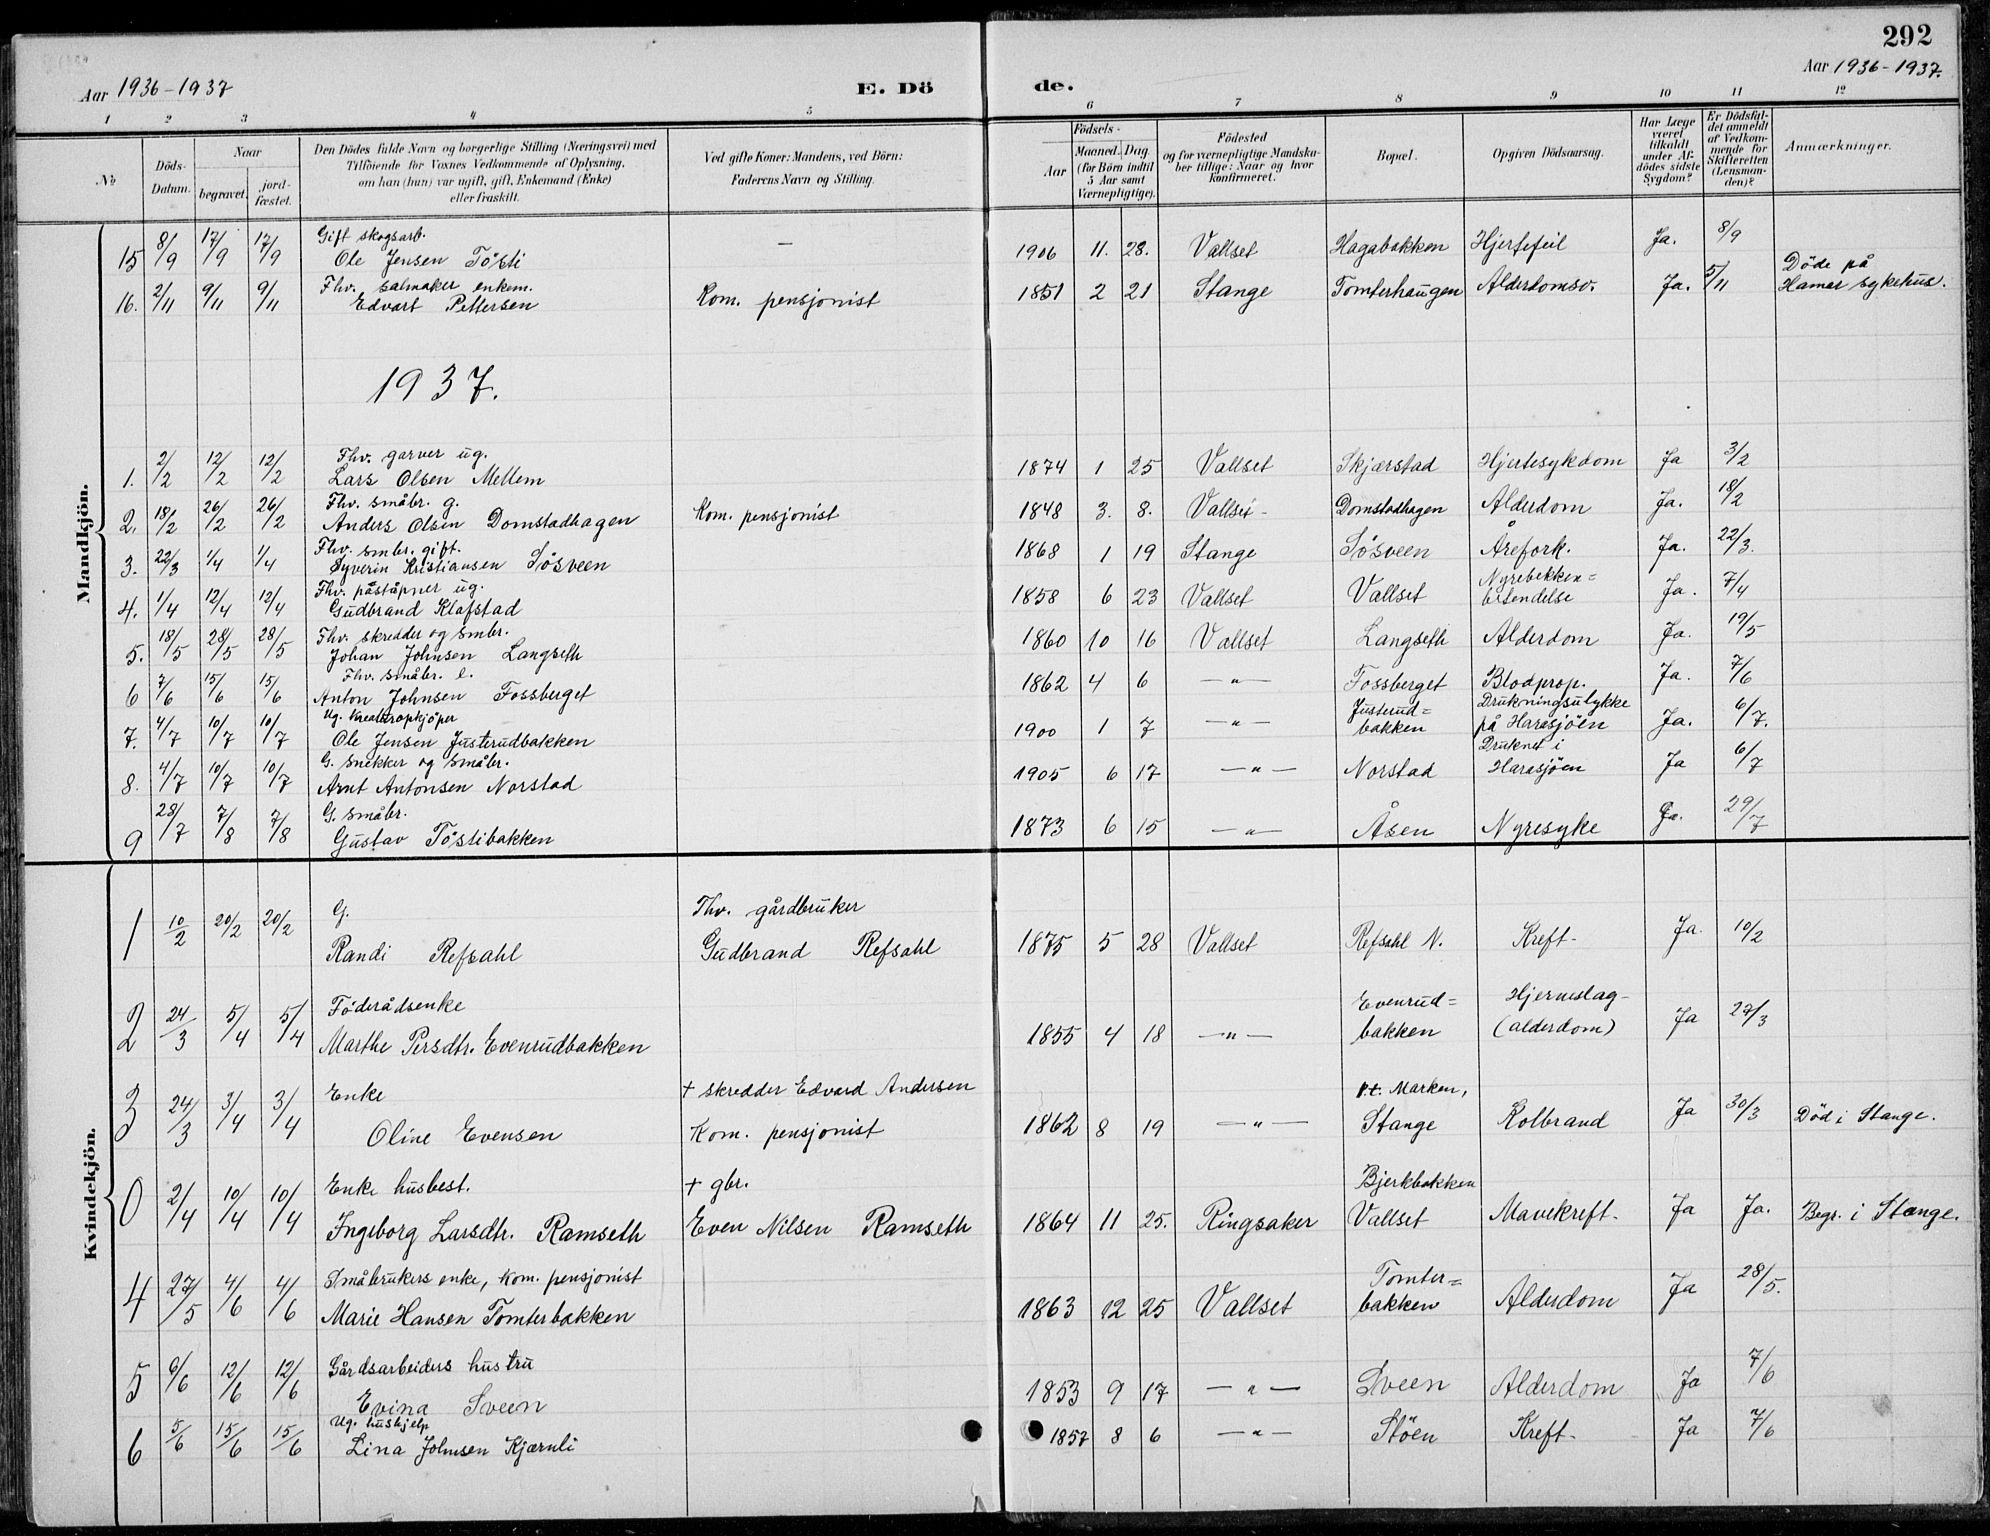 292
Aar 1936-1937 E. Dö de. Aar 1936-1937.
1 2 3 4 5 6 7 8 9 10 11 12
No
Döds-Datum.
Naar
begravet.
jordfæstet.
Den Dödes fulde Navn og borgerlige Stilling (Næringsvei) med
Tilföiende for Voxnes Vedkommende af Oplysning,
om han (hun) var ugift, gift, Enkemand (Enke)
eller fraskilt.
Ved gifte Koner: Mandens, ved Börn:
Faderens Navn og Stilling.
Födsels-
Aar
Maaned. Dag.
(for Börn indtil
5 Aar samt
Værnepligtige).
Födested
og for værnepligtige Mandska-
ber tillige: Naar og hvor
konfirmeret.
Bopæl.
Opgiven Dödsaarsag.
Har Læge
været
tilkaldt
under Af-
dödes sidste
Sygdom?
Er Dödsfal-
det anmeldt
af Vedkom-
mende for
Skifteretten
(Lensman-
den)?
Anmærkninger.
Mandkjön.
Gift skogsarb.
15 8/9 17/9 17/9 Ole Jensen Tösti — 1906 11. 28. Vallset Hagabakken Hjertefeil Ja. 8/9
Fhv. salmaker enkem. Döde på
16. 2/11 9/11 9/11 Edvart Pettersen Kom. pensjonist 1851 2 21 Stange Tomterhaugen Alderdomsv. Ja. 5/11 Hamar sykehus.
1937.
Fhv. garver ug.
1. 2/2 12/2 12/2 Lars Olsen Mellem 1874 1 25 Vallset Skjærstad Hjertesykdom Ja 3/2
Fhv. småbr. g.
2. 18/2 26/2 26/2 Anders Olsen Domstadhagen Kom. pensjonist 1848 3. 8. Vallset - Domstadhagen Alderdom Ja. 18/2
Fhv. smbr. gift.
3. 22/3 1/4 1/4 Syverin Kristiansen Sösveen 1868 1 19 Stange Sösveen Årefork. Ja. 22/3.
Fhv. påståpner ug. Nyrebekken=
4. 1/4 12/4 12/4 Gudbrand Klafstad 1858 6 23 Vallset Vallset betendelse Ja. 7/4
Fhv. skredder og smbr.
5. 18/5 28/5 28/5 Johan Johnsen Langseth 1860 10 16 Vallset Langseth Alderdom Ja. 19/5
Fhv. småbr. e.
6 7/6 15/6 15/6 Anton Johnsen Fossberget 1862 4 6 —"— Fossberget Blodprop. Ja. 7/6
Ug. kreaturopkjöper Justerud= Drukningsulykke
7. 4/7 10/7 10/7 Ole Jensen Justerudbakken 1900 1 7 —"— bakken på Harasjöen Ja. 6/7.
G. snekker og småbr. Druknet i
8. 4/7 10/7 10/7 Arnt Antonsen Norstad 1905 6 17 —"— Norstad Harasjöen Ja 6/7
G. småbr.
9 28/7 7/8 7/8 Gustav Töstibakken 1873 6 15 —"— Åsen Nyresyke Ja. 29/7
Kvindekjön.
G. Fhv. gårdbruker
1 10/2 20/2 20/2 Randi Refsahl Gudbrand Refsahl 1875 5 28 Vallset Refsahl N. Kreft- Ja. 10/2
Föderådsenke Evenrud= Hjerneslag-
2 24/3 5/4 5/4 Marthe Persdtr. Evenrudbakken 1855 4 18 —"— bakken (alderdom) Ja 27/3
Enke + skredder Edvard Andersen p.t. Marken,
3 24/3 3/4 3/4 Oline Evensen Kom. pensjonist 1862 8 19 —"— Stange Kolbrand Ja 30/3 Död i Stange.
Enke husbest. + gbr. Bjerkbakken
0 2/4 10/4 10/4 Ingeborg Larsdtr. Ramseth Even Nilsen Ramseth 1864 11 25. Ringsaker Vallset Mavekreft- Ja Ja. Begr. i Stange.
Småbrukers enke, kom. pensjonist Tomter=
4 27/5 4/6 4/6 Marie Hansen Tomterbakken 1863 12 25 Vallset bakken Alderdom Ja 28/5.
Gårdsarbeiders hustru
5 6/6 12/6 12/6 Evina Sveen 1853 9 17 —"— Sveen Alderdom Ja 7/6
Ug. hushjelp
6 5/6 15/6 15/6 Lina Johnsen Kjærnli 1857 8 6 —"— Stöen Kreft- Ja 7/6